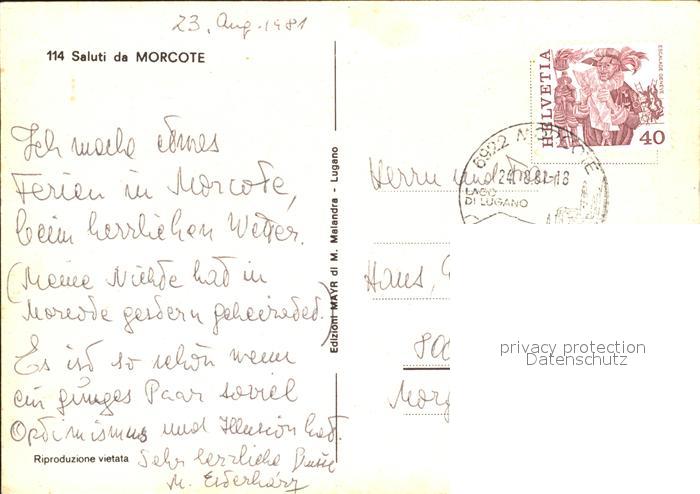 23. Aug. 1981
114 Saluti da MORCOTE
Ich mache etwas
Ferien in Morcote,
beim herrlichen Wetter.
(Meine Nichte hat in
Morcote gestern geheiratet.)
Es ist so schön wenn
ein junges Paar soviel
Optimismus und Illusion hat.
Sehr herzliche
M.
Riproduzione vietata
Edizioni MAYR di M. Malandra - Lugano
HELVETIA
ESCALADE GENÈVE
40
6922 MORCOTE
LAGO
DI LUGANO
Herrn und
Hans,
privacy protection
Datenschutz